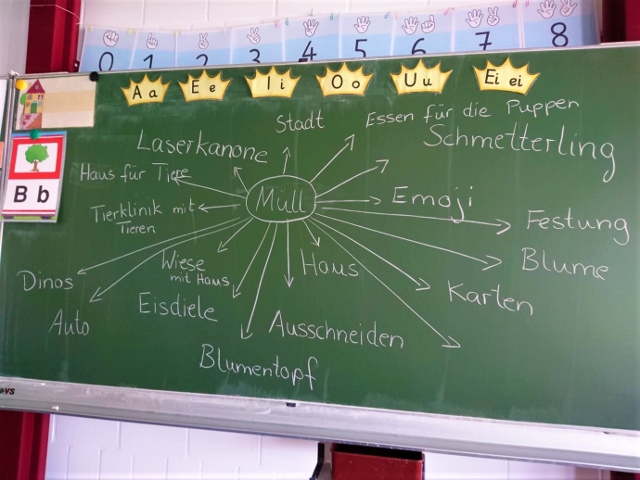 0 1 2 3 4 5 6 7 8
Aa Ee Ii Oo Uu Ei ei
Bb
Stadt
Essen für die Puppen
Laserkanone
Schmetterling
Haus für Tiere
Müll
Emoji
Tierklinik mit
Tieren
Festung
Wiese
mit Haus
Haus
Blume
Dinos
Karten
Eisdiele
Auto
Ausschneiden
Blumentopf